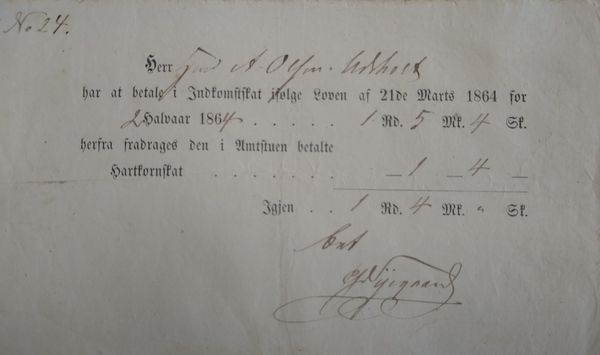 No 24.
Herr A. Olsen. Udholt
har at betale i Indkomstskat ifølge Loven af 21de Marts 1864 for
2 Halvaar 1864 . . . . . 1 Rd. 5 Mk. 4 Sk.
herfra fradrages den i Amtstuen betalte
Hartkornskat . . . . . . . — 1 — 4 —
Igjen . . 1 Rd. 4 Mk. " Sk.
bet